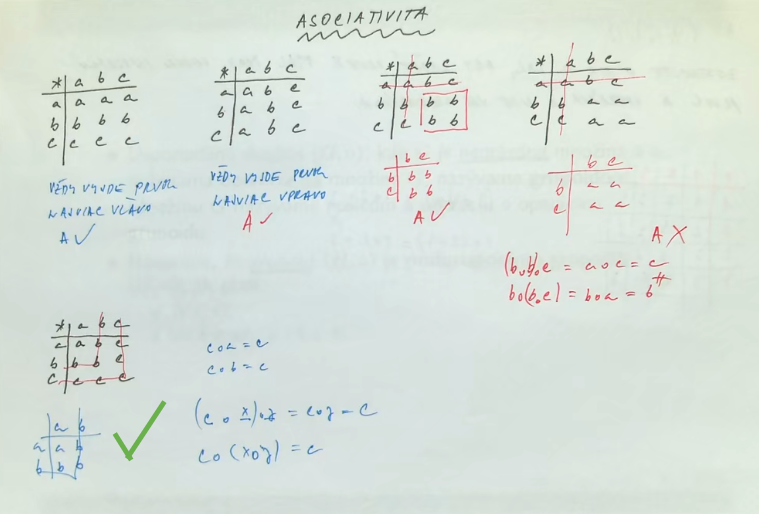 ASOCIATIVITA
* a b c
a a a a
b b b b
c c c c
VŽDY VYJDE PRVOK
NAJVIAC VLAVO
A ✓
* a b c
a a b c
b a b c
c a b c
VŽDY VYJDE PRVOK
NAJVIAC VPRAVO
A ✓
* a b c
a a b c
b b b b
c c b b
b c
b b b
c b b
A ✓
* a b c
a a b c
b b a a
c c a a
b c
b a a
c a a
A X
(b∘b)∘c = a∘c = c
b∘(b∘c) = b∘a = b #
* a b c
a a b c
b b b c
c c c c
a b
a a b
b b b
✓
c∘a = c
c∘b = c
(c∘x)∘y = c∘y = c
c∘(x∘y) = c